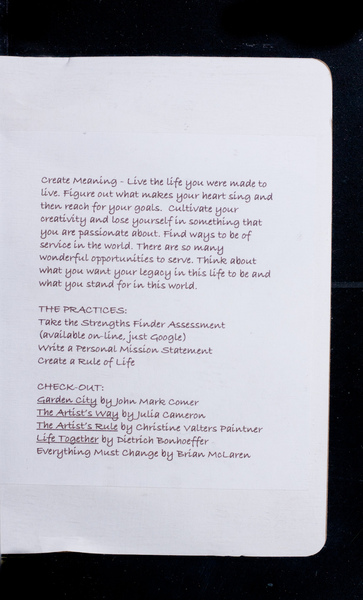 Create Meaning - Live the life you were made to
live. Figure out what makes your heart sing and
then reach for your goals. Cultivate your
creativity and lose yourself in something that
you are passionate about. Find ways to be of
service in the world. There are so many
wonderful opportunities to serve. Think about
what you want your legacy in this life to be and
what you stand for in this world.
THE PRACTICES:
Take the Strengths Finder Assessment
(available on-line, just Google)
Write a Personal Mission Statement
Create a Rule of Life
CHECK-OUT:
Garden City by John Mark Comer
The Artist's Way by Julia Cameron
The Artist's Rule by Christine Valters Paintner
Life Together by Dietrich Bonhoeffer
Everything Must Change by Brian McLaren